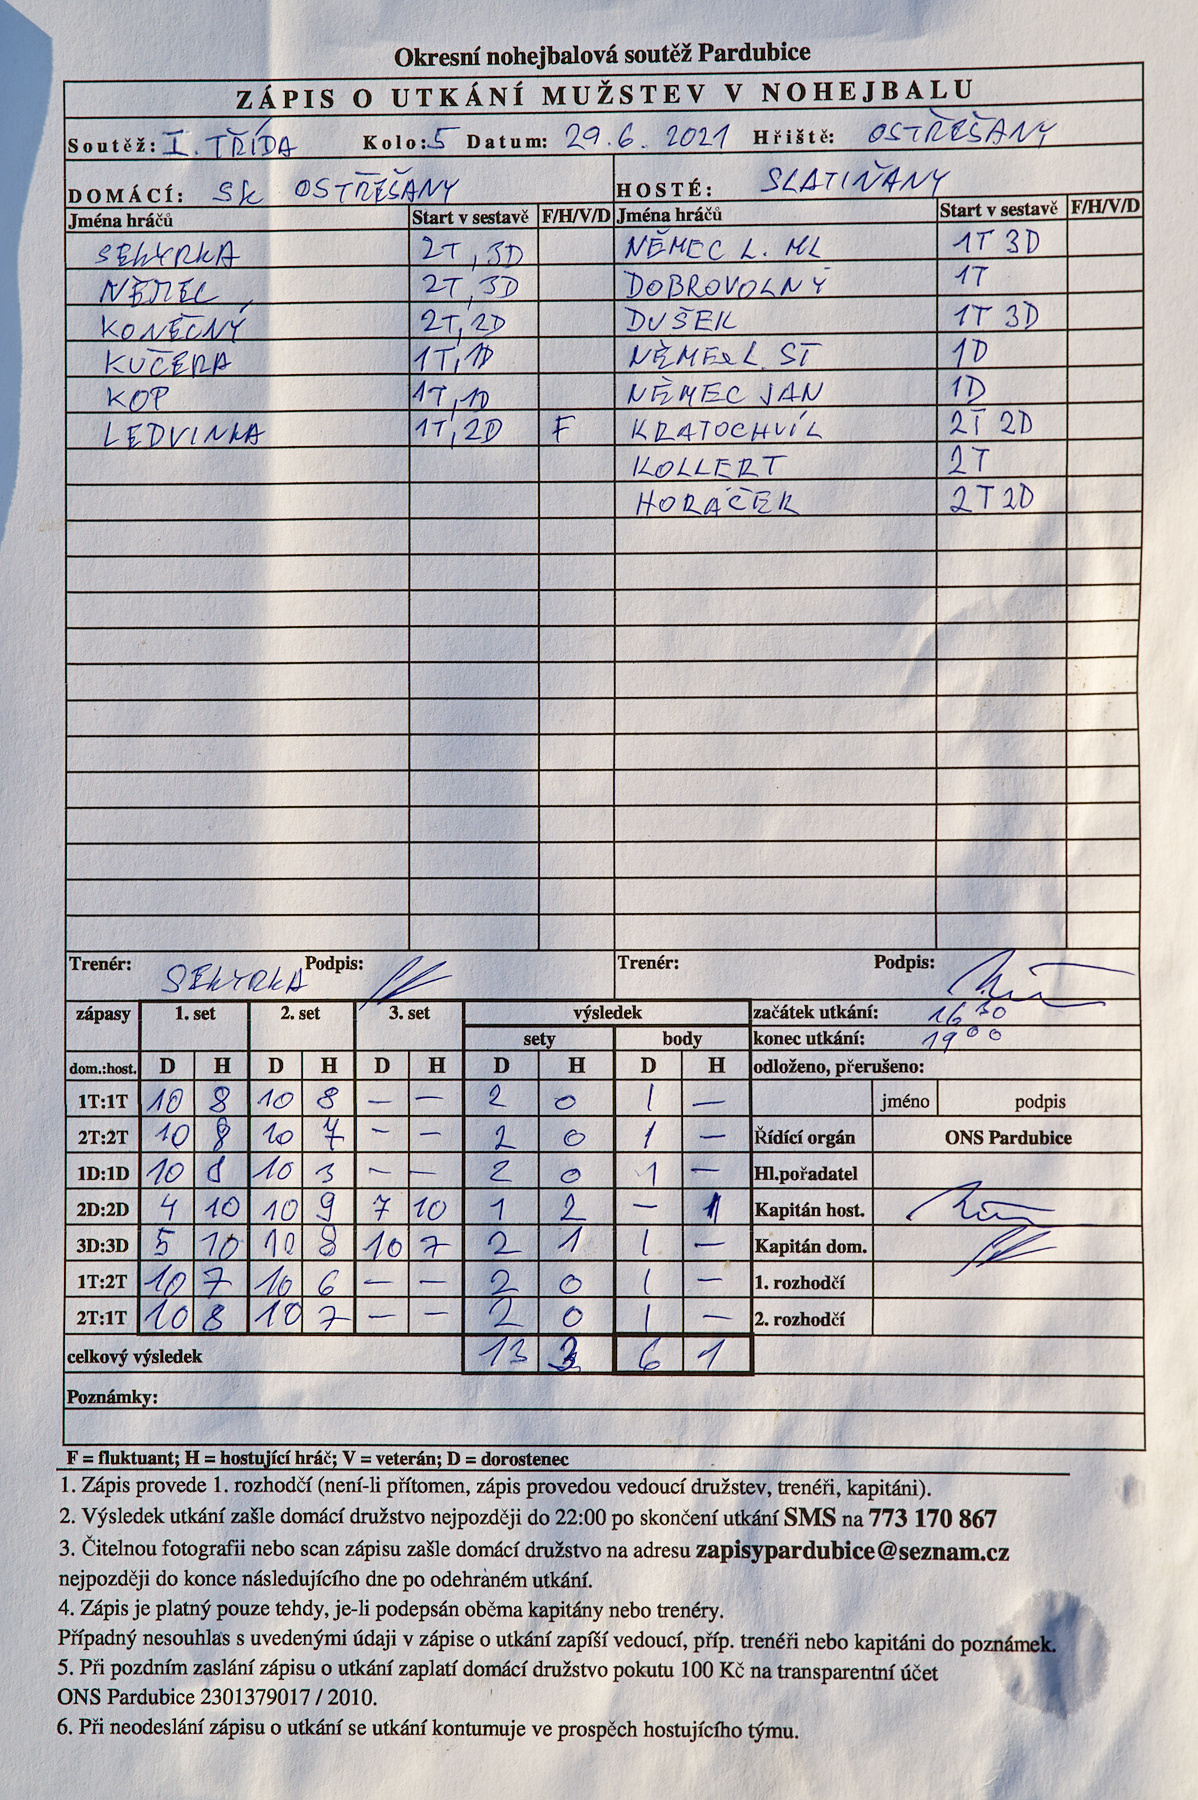 Okresní nohejbalová soutěž Pardubice
ZÁPIS O UTKÁNÍ MUŽSTEV V NOHEJBALU
Soutěž: I. TŘÍDA Kolo: 5 Datum: 29.6. 2021 Hřiště: OSTŘEŠANY
DOMÁCÍ: SK OSTŘEŠANY HOSTÉ: SLATIŇANY
Jména hráčů Start v sestavě F/H/V/D Jména hráčů Start v sestavě F/H/V/D
SEKYRKA 2T, 3D NĚMEC L. ML 1T 3D
NĚMEC 2T, 3D DOBROVOLNÝ 1T
KONEČNÝ 2T, 2D DUŠEK 1T 3D
KUČERA 1T, 1D NĚMEC L. ST 1D
KOP 1T, 1D NĚMEC JAN 1D
LEDVINKA 1T, 2D F KRATOCHVÍL 2T 2D
KOLLERT 2T
HORÁČEK 2T 2D
Trenér: SEKYRKA Podpis: Trenér: Podpis:
zápasy 1. set 2. set 3. set výsledek začátek utkání: 16 30
sety body konec utkání: 19 00
dom.:host. D H D H D H D H D H odloženo, přerušeno:
1T:1T 10 8 10 8 – – 2 0 1 – jméno podpis
2T:2T 10 8 10 7 – – 2 0 1 – Řídící orgán ONS Pardubice
1D:1D 10 8 10 3 – – 2 0 1 – Hl.pořadatel
2D:2D 4 10 10 9 7 10 1 2 – 1 Kapitán host.
3D:3D 5 10 10 8 10 7 2 1 1 – Kapitán dom.
1T:2T 10 7 10 6 – – 2 0 1 – 1. rozhodčí
2T:1T 10 8 10 7 – – 2 0 1 – 2. rozhodčí
celkový výsledek 13 3 6 1
Poznámky:
F = fluktuant; H = hostující hráč; V = veterán; D = dorostenec
1. Zápis provede 1. rozhodčí (není-li přítomen, zápis provedou vedoucí družstev, trenéři, kapitáni).
2. Výsledek utkání zašle domácí družstvo nejpozději do 22:00 po skončení utkání SMS na 773 170 867
3. Čitelnou fotografii nebo scan zápisu zašle domácí družstvo na adresu zapisypardubice@seznam.cz
nejpozději do konce následujícího dne po odehraném utkání.
4. Zápis je platný pouze tehdy, je-li podepsán oběma kapitány nebo trenéry.
Případný nesouhlas s uvedenými údaji v zápise o utkání zapíší vedoucí, příp. trenéři nebo kapitáni do poznámek.
5. Při pozdním zaslání zápisu o utkání zaplatí domácí družstvo pokutu 100 Kč na transparentní účet
ONS Pardubice 2301379017 / 2010.
6. Při neodeslání zápisu o utkání se utkání kontumuje ve prospěch hostujícího týmu.